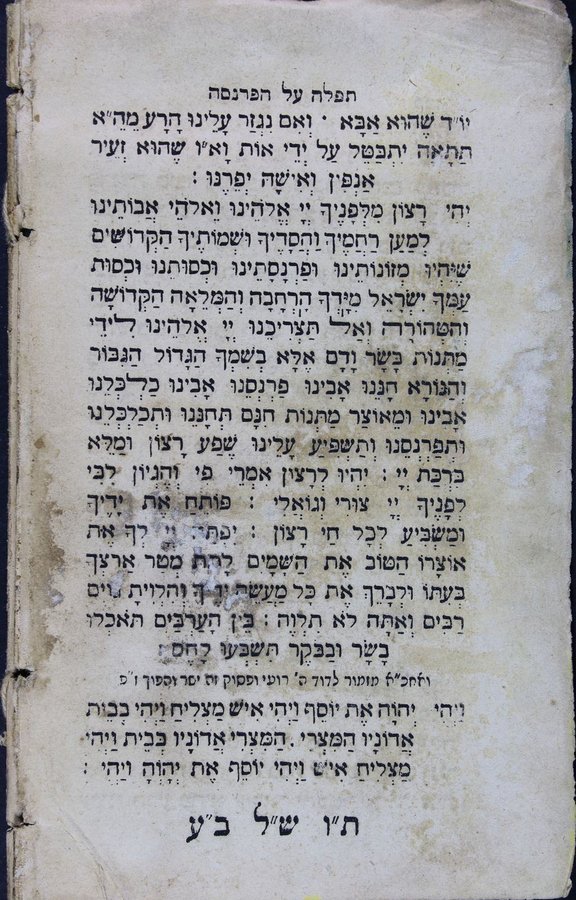 תפלה על הפרנסה
יו״ד שֶׁהוּא אַבָּא · וְאִם נִגְזַר עָלֵינוּ הָרָע מֵהֵ״א
תַּתָּאָה יִתְבַּטֵּל עַל יְדֵי אוֹת וָא״ו שֶׁהוּא זְעֵיר
אַנְפִּין וְאִישָׁהּ יְפֵרֶנּוּ :
יְהִי רָצוֹן מִלְּפָנֶיךָ יְיָ אֱלֹהֵינוּ וֵאלֹהֵי אֲבוֹתֵינוּ
לְמַעַן רַחֲמֶיךָ וַחֲסָדֶיךָ וּשְׁמוֹתֶיךָ הַקְּדוֹשִׁים
שֶׁיִּהְיוּ מְזוֹנוֹתֵינוּ וּפַרְנָסָתֵינוּ וּכְסוּתֵנוּ וּכְסוּת
עַמְּךָ יִשְׂרָאֵל מִיָּדְךָ הָרְחָבָה וְהַמְּלֵאָה הַקְּדוֹשָׁה
וְהַטְּהוֹרָה וְאַל תַּצְרִיכֵנוּ יְיָ אֱלֹהֵינוּ לִידֵי
מַתְּנוֹת בָּשָׂר וָדָם אֶלָּא בְּשִׁמְךָ הַגָּדוֹל הַגִּבּוֹר
וְהַנּוֹרָא חָנֵּנוּ אָבִינוּ פַּרְנְסֵנוּ אָבִינוּ כַּלְכְּלֵנוּ
אָבִינוּ וּמֵאוֹצַר מַתְּנוֹת חִנָּם תְּחָנֵּנוּ וּתְכַלְכְּלֵנוּ
וּתְפַרְנְסֵנוּ וְתַשְׁפִּיעַ עָלֵינוּ שֶׁפַע רָצוֹן וּמָלֵא
בִּרְכַּת יְיָ : יִהְיוּ לְרָצוֹן אִמְרֵי פִי וְהֶגְיוֹן לִבִּי
לְפָנֶיךָ יְיָ צוּרִי וְגוֹאֲלִי : פּוֹתֵחַ אֶת יָדֶיךָ
וּמַשְׂבִּיעַ לְכָל חַי רָצוֹן : יִפְתַּח יְיָ לְךָ אֶת
אוֹצָרוֹ הַטּוֹב אֶת הַשָּׁמַיִם לָתֵת מְטַר אַרְצְךָ
בְּעִתּוֹ וּלְבָרֵךְ אֶת כָּל מַעֲשֵׂה יָדֶךָ וְהִלְוִיתָ גּוֹיִם
רַבִּים וְאַתָּה לֹא תִלְוֶה : בֵּין הָעַרְבַּיִם תֹּאכְלוּ
בָשָׂר וּבַבֹּקֶר תִּשְׂבְּעוּ לָחֶם :
ואחכ״א מזמור לדוד ה׳ רועי ופסוק זה ישר והפוך ז״פ
וַיְהִי יְהוָה אֶת יוֹסֵף וַיְהִי אִישׁ מַצְלִיחַ וַיְהִי בְּבֵית
אֲדוֹנָיו הַמִּצְרִי . הַמִּצְרִי אֲדוֹנָיו בְּבֵית וַיְהִי
מַצְלִיחַ אִישׁ וַיְהִי יוֹסֵף אֶת יְהוָה וַיְהִי :
ת״ו ש״ל ב״ע